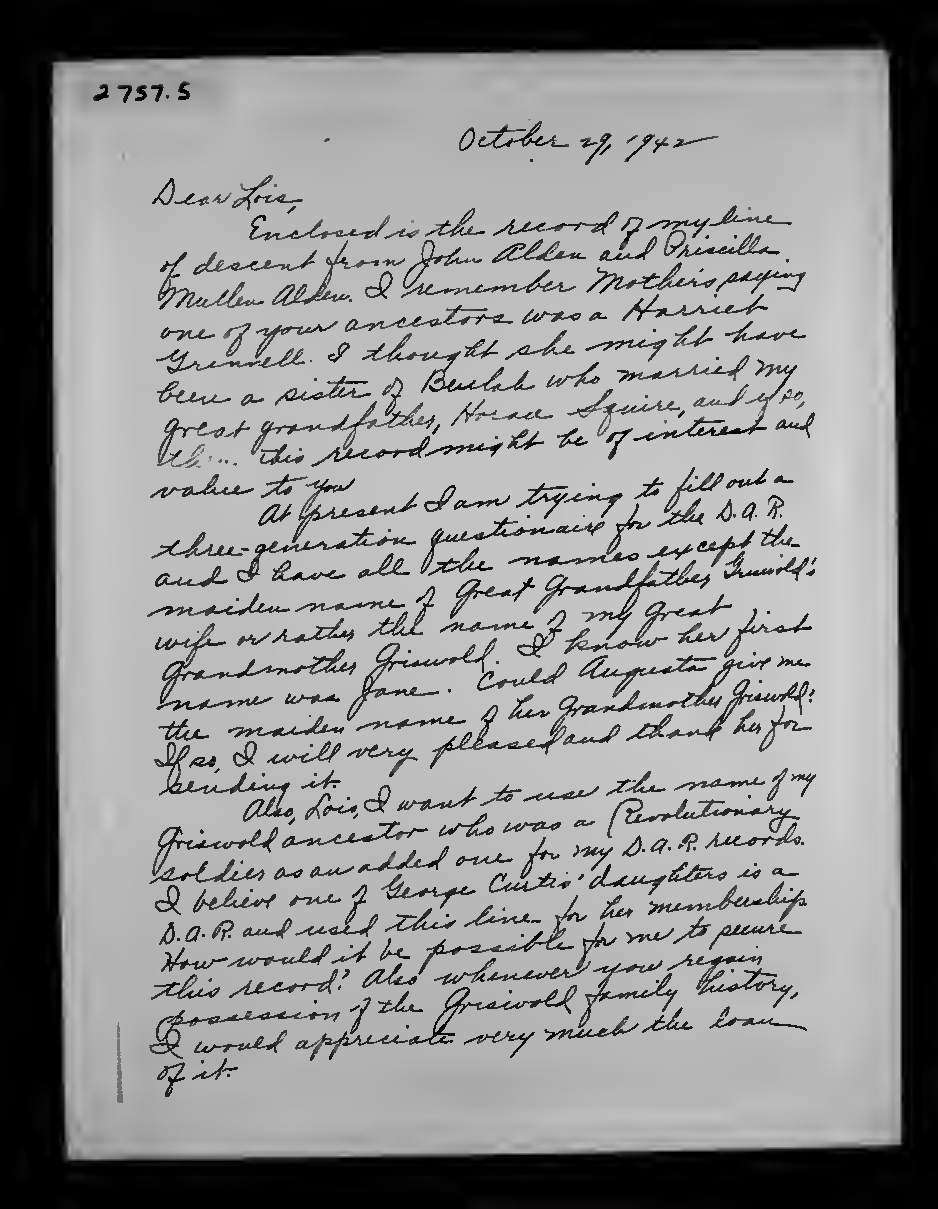 2757.5
October 29, 1942
Dear Lois,
Enclosed is the record of my line
of descent from John Alden and Priscilla
Mullen Alden. I remember Mother's saying
one of your ancestors was a Harriet
Grinnell. I thought she might have
been a sister of Beulah who married my
great grandfather, Horace Squire, and if so,
this record might be of interest and
value to you
At present I am trying to fill out a
three-generation questionaire for the D.A.R.
and I have all the names except the
maiden name of Great Grandfather Griswold's
wife or rather the name of my Great
Grandmother Griswold. I know her first
name was Jane. Could Augusta give me
the maiden name of her Grandmother Griswold?
If so, I will very pleased and thank her for
sending it.
Also, Lois, I want to use the name of my
Griswold ancestor who was a Revolutionary
soldier as an added one for my D.A.R. records.
I believe one of George Curtis' daughters is a
D.A.R. and used this line for her membership.
How would it be possible for me to secure
this record? Also whenever you regain
possession of the Griswold family history,
I would appreciate very much the loan
of it.